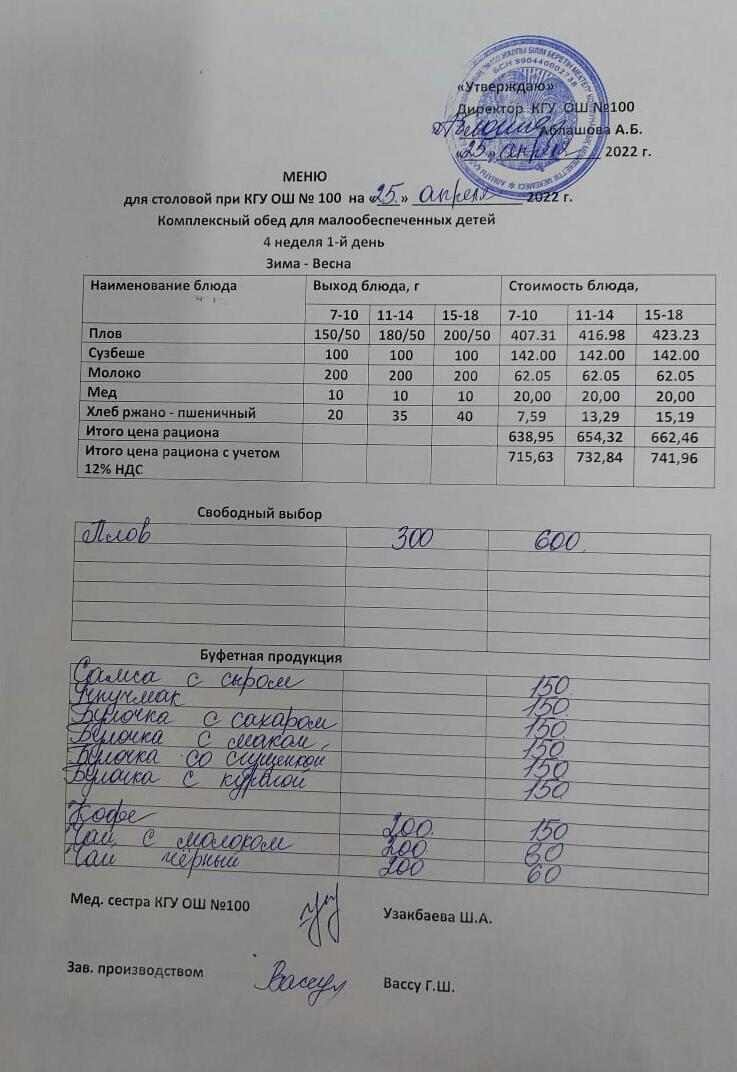 БСН 990440002738
«Утверждаю»
Директор КГУ ОШ №100
Аблашова А.Б.
«25» апреля 2022 г.
МЕНЮ
для столовой при КГУ ОШ № 100 на «25» апреля 2022 г.
Комплексный обед для малообеспеченных детей
4 неделя 1-й день
Зима - Весна
Наименование блюда Выход блюда, г Стоимость блюда,
7-10 11-14 15-18 7-10 11-14 15-18
Плов 150/50 180/50 200/50 407.31 416.98 423.23
Сузбеше 100 100 100 142.00 142.00 142.00
Молоко 200 200 200 62.05 62.05 62.05
Мед 10 10 10 20,00 20,00 20,00
Хлеб ржано - пшеничный 20 35 40 7,59 13,29 15,19
Итого цена рациона 638,95 654,32 662,46
Итого цена рациона с учетом 715,63 732,84 741,96
12% НДС
Свободный выбор
Плов 300 600
Буфетная продукция
Самса с сыром 150
Кпучмак 150
Булочка с сахаром 150
Булочка с маком 150
Булочка со сгущенкой 150
Булочка с курагой 150
Кофе 200 150
Чай с молоком 200 80
Чай чёрный 200 60
Мед. сестра КГУ ОШ №100 Узакбаева Ш.А.
Зав. производством Вассу Г.Ш.